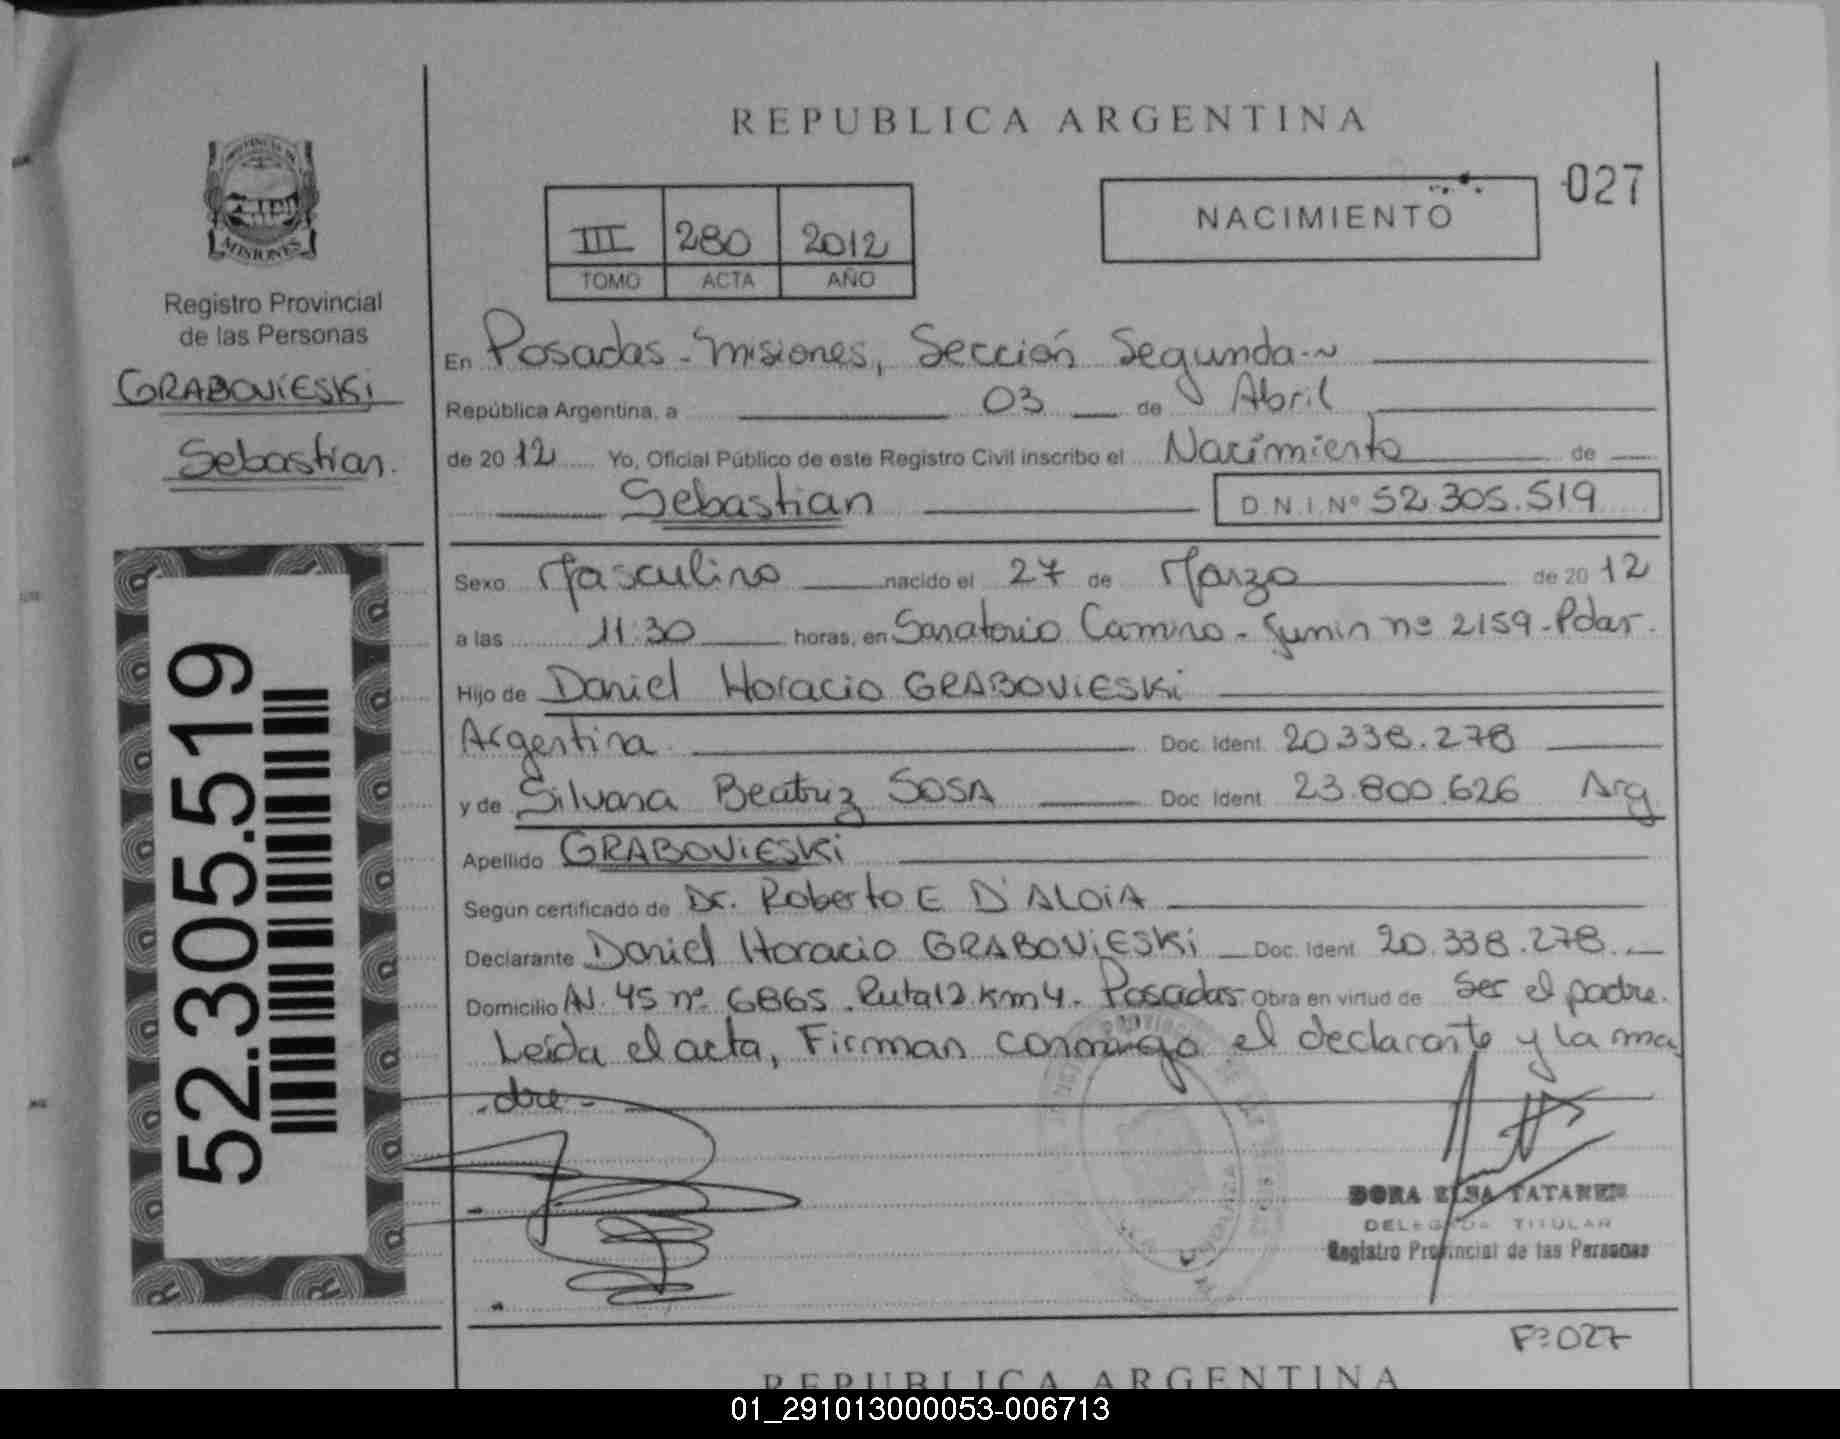 REPUBLICA ARGENTINA
PROVINCIA DE
MISIONES
Registro Provincial
de las Personas
GRABOVIESKI
Sebastian.
52.305.519
III 280 2012
TOMO ACTA AÑO
NACIMIENTO
027
En Posadas - Misiones, Sección Segunda.~
República Argentina, a 03 de Abril
de 2012 Yo, Oficial Público de este Registro Civil inscribo el Nacimiento de
Sebastian D.N.I. Nº 52.305.519
Sexo Masculino nacido el 27 de Marzo de 2012
a las 11:30 horas, en Sanatorio Camino - Junin nº 2159 - Pdas.
Hijo de Daniel Horacio GRABOVIESKI
Argentina Doc. Ident. 20.338.278
y de Silvana Beatriz SOSA Doc. Ident. 23.800.626 Arg
Apellido GRABOVIESKI
Según certificado de Dr. Roberto E D'ALOIA
Declarante Daniel Horacio GRABOVIESKI Doc. Ident. 20.338.278.
Domicilio Av. 45 nº 6865. Ruta 12 Km 4. Posadas Obra en virtud de ser el padre.
Leida el acta, Firman conmigo el declarante y la ma
dre -
DORA ELSA
DELEGADA TITULAR
Registro Provincial de las Personas
Fº 027
REPUBLICA ARGENTINA
01_291013000053-006713